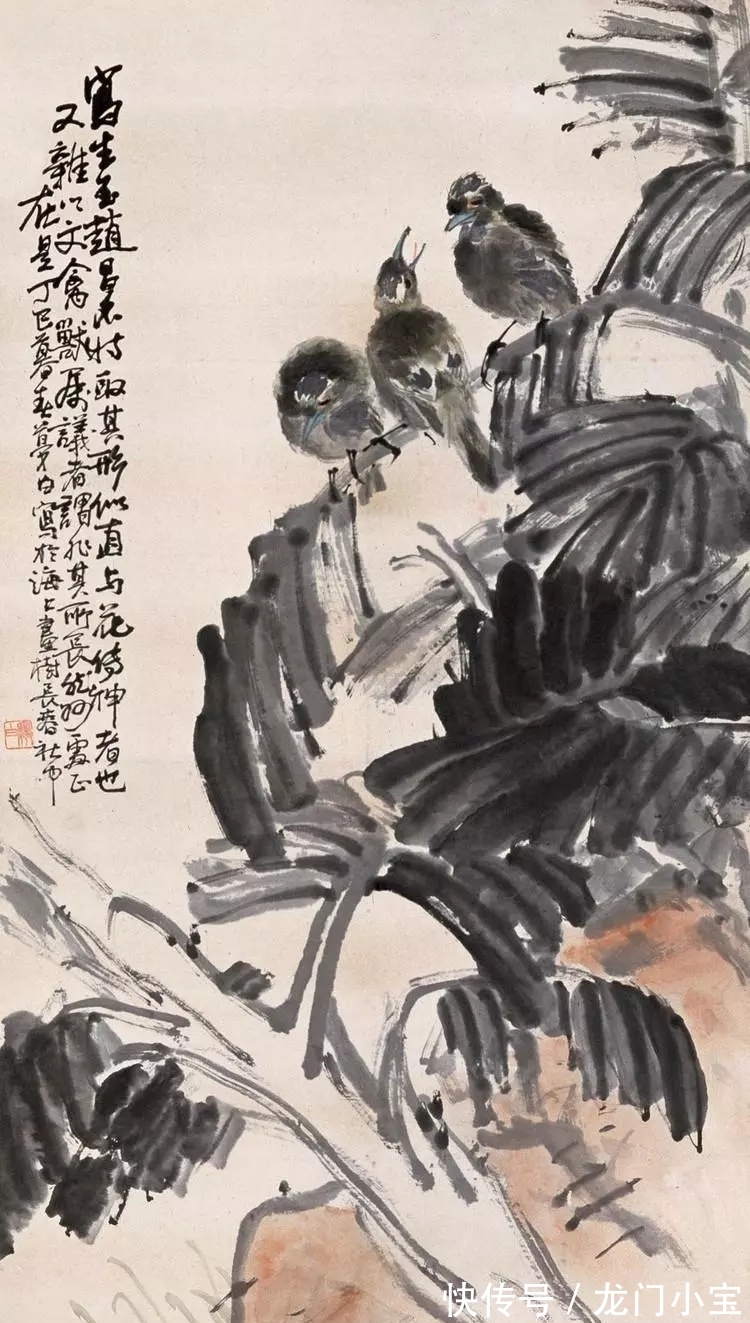 寫生至趙昌不特取其形似直与花傳神者也
又雜以文禽獸議者謂非其所長然妙處正
在是丁巳暮春夢白寫於海上畫樹長春社中
快传号 / 龙门小宝